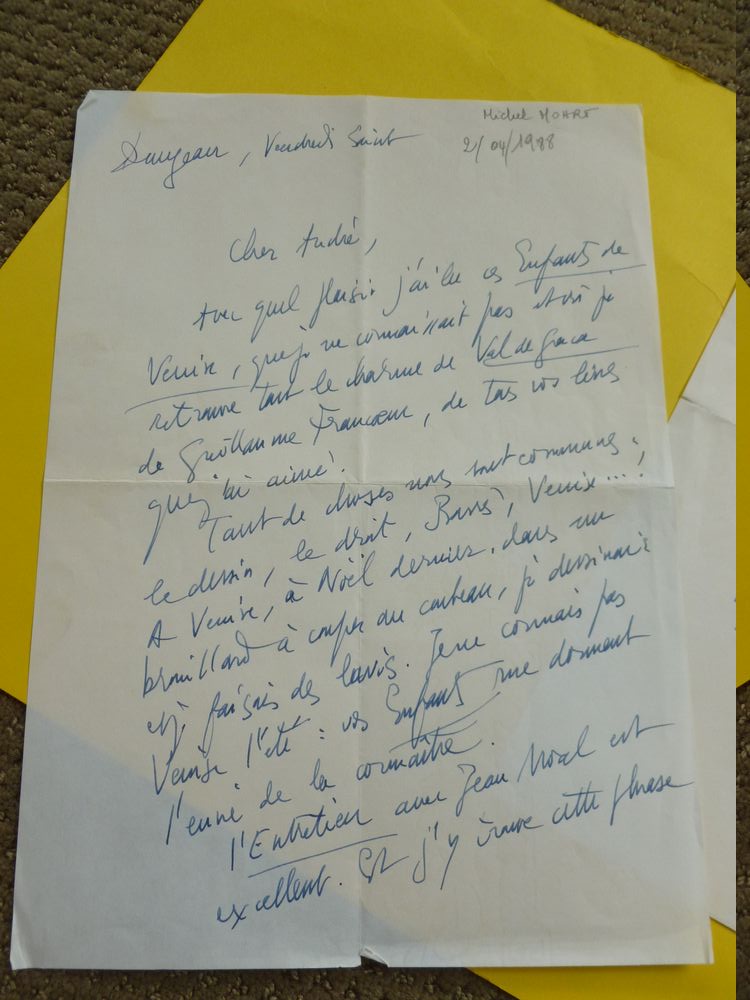 Michel MOHRT
2/04/1988
Dangeau, Vendredi Saint
Cher André,
Avec quel plaisir j'ai lu ces Enfants de
Venise, que je ne connaissait pas et où je
retrouve tout le charme de Val de Grace
de Guillaume Francœur, de tous vos livres
que j'ai aimé.
Tant de choses nous sont communes :
le dessin, le droit, Barrès, Venise... !
A Venise, à Noël dernier, dans un
brouillard à couper au couteau, je dessinais
et je faisais des lavis. Je ne connais pas
Venise l'été : vos Enfants me donnent
l'envie de la connaître.
l'Entretien avec Jean Moal est
excellent. Et j'y trouve cette phrase